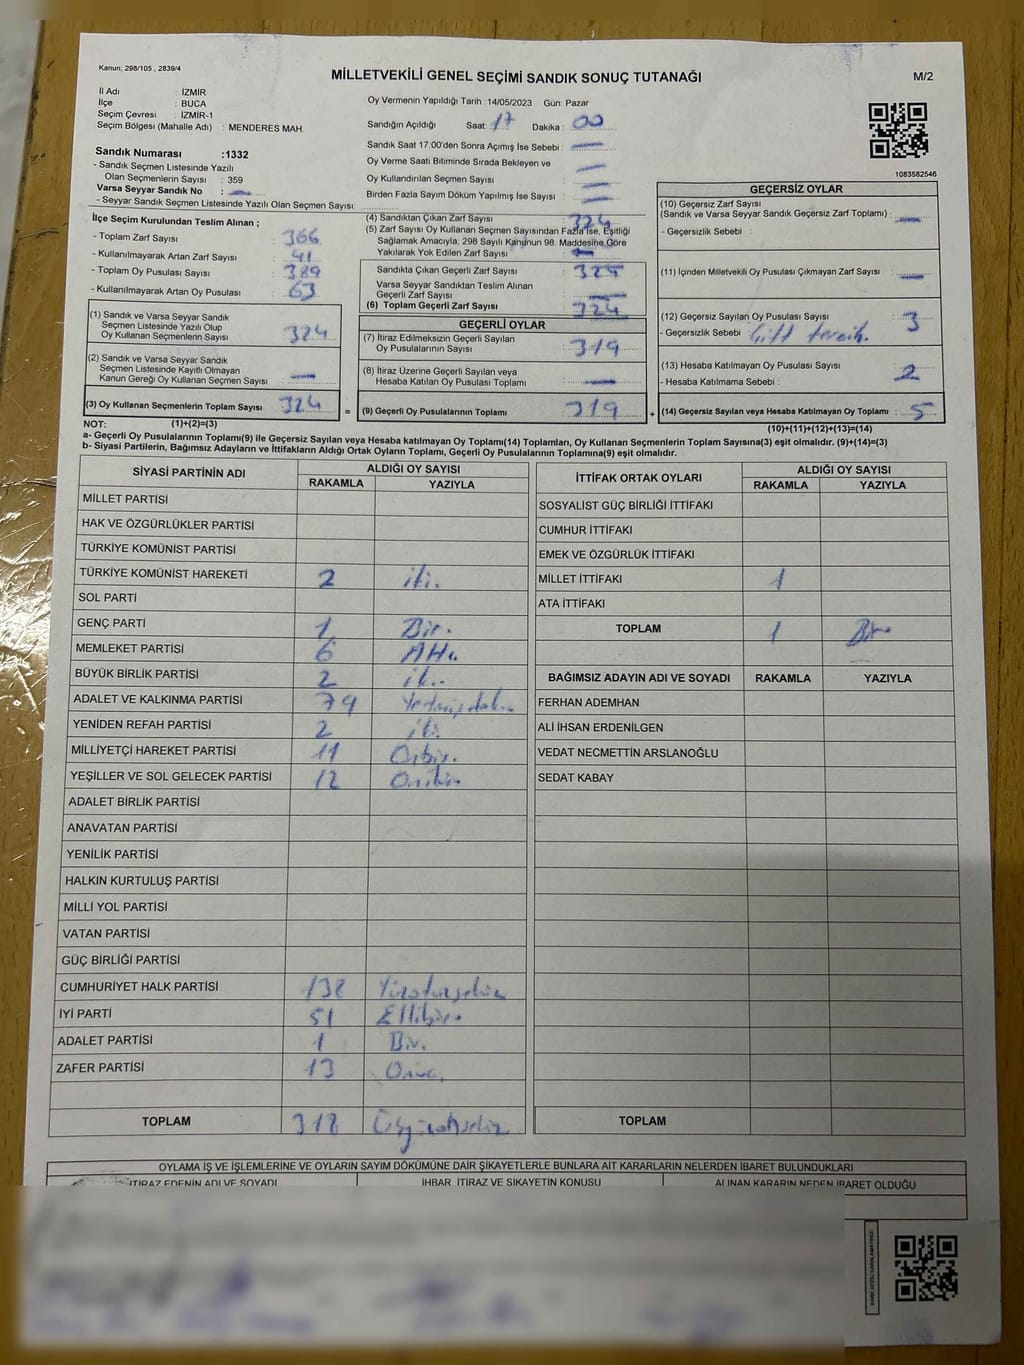 Kanun; 298/105 , 2839/4
MİLLETVEKİLİ GENEL SEÇİMİ SANDIK SONUÇ TUTANAĞI
M/2
İl Adı : İZMİR
İlçe : BUCA
Seçim Çevresi : İZMİR-1
Seçim Bölgesi (Mahalle Adı) : MENDERES MAH.
Sandık Numarası :1332
- Sandık Seçmen Listesinde Yazılı
Olan Seçmenlerin Sayısı : 359
Varsa Seyyar Sandık No : —
- Seyyar Sandık Seçmen Listesinde Yazılı Olan Seçmen Sayısı:
Oy Vermenin Yapıldığı Tarih :14/05/2023 Gün: Pazar
Sandığın Açıldığı Saat: 17 Dakika : 00
Sandık Saat 17:00'den Sonra Açımış İse Sebebi : —
Oy Verme Saati Bitiminde Sırada Bekleyen ve
Oy Kullandırılan Seçmen Sayısı —
Birden Fazla Sayım Döküm Yapılmış İse Sayısı : —
1083582546
İlçe Seçim Kurulundan Teslim Alınan ;
- Toplam Zarf Sayısı : 366
- Kullanılmayarak Artan Zarf Sayısı : 41
- Toplam Oy Pusulası Sayısı : 389
- Kullanılmayarak Artan Oy Pusulası : 63
(1) Sandık ve Varsa Seyyar Sandık
Seçmen Listesinde Yazılı Olup
Oy Kullanan Seçmenlerin Sayısı : 324
(2) Sandık ve Varsa Seyyar Sandık
Seçmen Listesinde Kayıtlı Olmayan
Kanun Gereği Oy Kullanan Seçmen Sayısı : —
(3) Oy Kullanan Seçmenlerin Toplam Sayısı : 324 =
(1)+(2)=(3)
(4) Sandıktan Çıkan Zarf Sayısı : 324
(5) Zarf Sayısı Oy Kullanan Seçmen Sayısından Fazla İse, Eşitliği
Sağlamak Amacıyla; 298 Sayılı Kanunun 98. Maddesine Göre
Yakılarak Yok Edilen Zarf Sayısı : —
Sandıkta Çıkan Geçerli Zarf Sayısı : 324
Varsa Seyyar Sandıktan Teslim Alınan
Geçerli Zarf Sayısı : —
(6) Toplam Geçerli Zarf Sayısı : 324
GEÇERLİ OYLAR
(7) İtiraz Edilmeksizin Geçerli Sayılan
Oy Pusulalarının Sayısı : 319
(8) İtiraz Üzerine Geçerli Sayılan veya
Hesaba Katılan Oy Pusulası Toplamı : —
(9) Geçerli Oy Pusulalarının Toplamı : 319 +
GEÇERSİZ OYLAR
(10) Geçersiz Zarf Sayısı
(Sandık ve Varsa Seyyar Sandık Geçersiz Zarf Toplamı) : —
- Geçersizlik Sebebi :
(11) İçinden Milletvekili Oy Pusulası Çıkmayan Zarf Sayısı : —
(12) Geçersiz Sayılan Oy Pusulası Sayısı : 3
- Geçersizlik Sebebi : Çift tercih.
(13) Hesaba Katılmayan Oy Pusulası Sayısı : 2
- Hesaba Katılmama Sebebi :
(14) Geçersiz Sayılan veya Hesaba Katılmayan Oy Toplamı : 5
(10)+(11)+(12)+(13)=(14)
NOT:
a- Geçerli Oy Pusulalarının Toplamı(9) ile Geçersiz Sayılan veya Hesaba katılmayan Oy Toplamı(14) Toplamları, Oy Kullanan Seçmenlerin Toplam Sayısına(3) eşit olmalıdır. (9)+(14)=(3)
b- Siyasi Partilerin, Bağımsız Adayların ve İttifakların Aldığı Ortak Oyların Toplamı, Geçerli Oy Pusulalarının Toplamına(9) eşit olmalıdır.
SİYASİ PARTİNİN ADI ALDIĞI OY SAYISI
RAKAMLA YAZIYLA
MİLLET PARTİSİ
HAK VE ÖZGÜRLÜKLER PARTİSİ
TÜRKİYE KOMÜNİST PARTİSİ
TÜRKİYE KOMÜNİST HAREKETİ 2 iki.
SOL PARTİ
GENÇ PARTİ 1 Bir.
MEMLEKET PARTİSİ 6 Altı.
BÜYÜK BİRLİK PARTİSİ 2 iki.
ADALET VE KALKINMA PARTİSİ 79 Yetmişdokuz
YENİDEN REFAH PARTİSİ 2 iki.
MİLLİYETÇİ HAREKET PARTİSİ 11 Onbir.
YEŞİLLER VE SOL GELECEK PARTİSİ 12 Oniki.
ADALET BİRLİK PARTİSİ
ANAVATAN PARTİSİ
YENİLİK PARTİSİ
HALKIN KURTULUŞ PARTİSİ
MİLLİ YOL PARTİSİ
VATAN PARTİSİ
GÜÇ BİRLİĞİ PARTİSİ
CUMHURİYET HALK PARTİSİ 138 Yüzotuzsekiz
İYİ PARTİ 51 Ellibir.
ADALET PARTİSİ 1 Bir.
ZAFER PARTİSİ 13 Onüç.
TOPLAM 318 Üçyüzonsekiz
İTTİFAK ORTAK OYLARI ALDIĞI OY SAYISI
RAKAMLA YAZIYLA
SOSYALİST GÜÇ BİRLİĞİ İTTİFAKI
CUMHUR İTTİFAKI
EMEK VE ÖZGÜRLÜK İTTİFAKI
MİLLET İTTİFAKI 1
ATA İTTİFAKI
TOPLAM 1 Bir
BAĞIMSIZ ADAYIN ADI VE SOYADI RAKAMLA YAZIYLA
FERHAN ADEMHAN
ALİ İHSAN ERDENİLGEN
VEDAT NECMETTİN ARSLANOĞLU
SEDAT KABAY
TOPLAM
OYLAMA İŞ VE İŞLEMLERİNE VE OYLARIN SAYIM DÖKÜMÜNE DAİR ŞİKAYETLERLE BUNLARA AİT KARARLARIN NELERDEN İBARET BULUNDUKLARI
İTİRAZ EDENİN ADI VE SOYADI İHBAR, İTİRAZ VE ŞİKAYETİN KONUSU ALINAN KARARIN NEDEN İBARET OLDUĞU